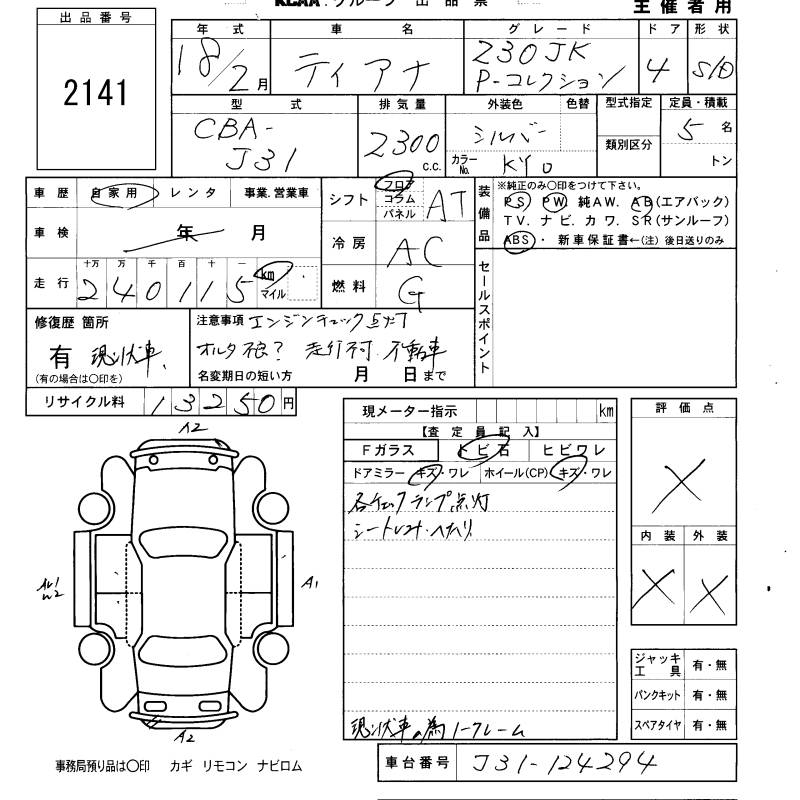 KCAA.グループ 出品票
主催者用
出品番号
2141
年式 車名 グレード ドア 形状
18/2月 ティアナ 230JK P-コレクション 4 S/D
型式 排気量 外装色 色替 型式指定 定員・積載
CBA-J31 2300 c.c. シルバー カラーNo. KY0 類別区分 5名 トン
車歴 自家用 レンタ 事業.営業車
車検 年 月
走行 十万 万 千 百 十 一
240115 km マイル
シフト フロア コラム パネル AT
冷房 AC
燃料 G
装備品 ※純正のみ○印をつけて下さい。
PS PW 純AW. AB(エアバック)
TV. ナビ. カワ. SR(サンルーフ)
ABS ・ 新車保証書←(注) 後日送りのみ
セールスポイント
修復歴 箇所
有 現状車.
(有の場合は○印を)
注意事項 エンジンチェック点灯
オルタ不良? 走行不可. 不動車
名変期日の短い方 月 日まで
リサイクル料 13250円
現メーター指示 km
【査定員記入】
Fガラス トビ石 ヒビワレ
ドアミラー キズ・ワレ ホイール(CP) キズ・ワレ
各チェックランプ点灯
現状車の為ノークレーム
評価点
×
内装 外装
× ×
A2
A1
A2
ジャッキ工具 有・無
パンクキット 有・無
スペアタイヤ 有・無
事務局預り品は○印 カギ リモコン ナビロム
車台番号 J31-124294